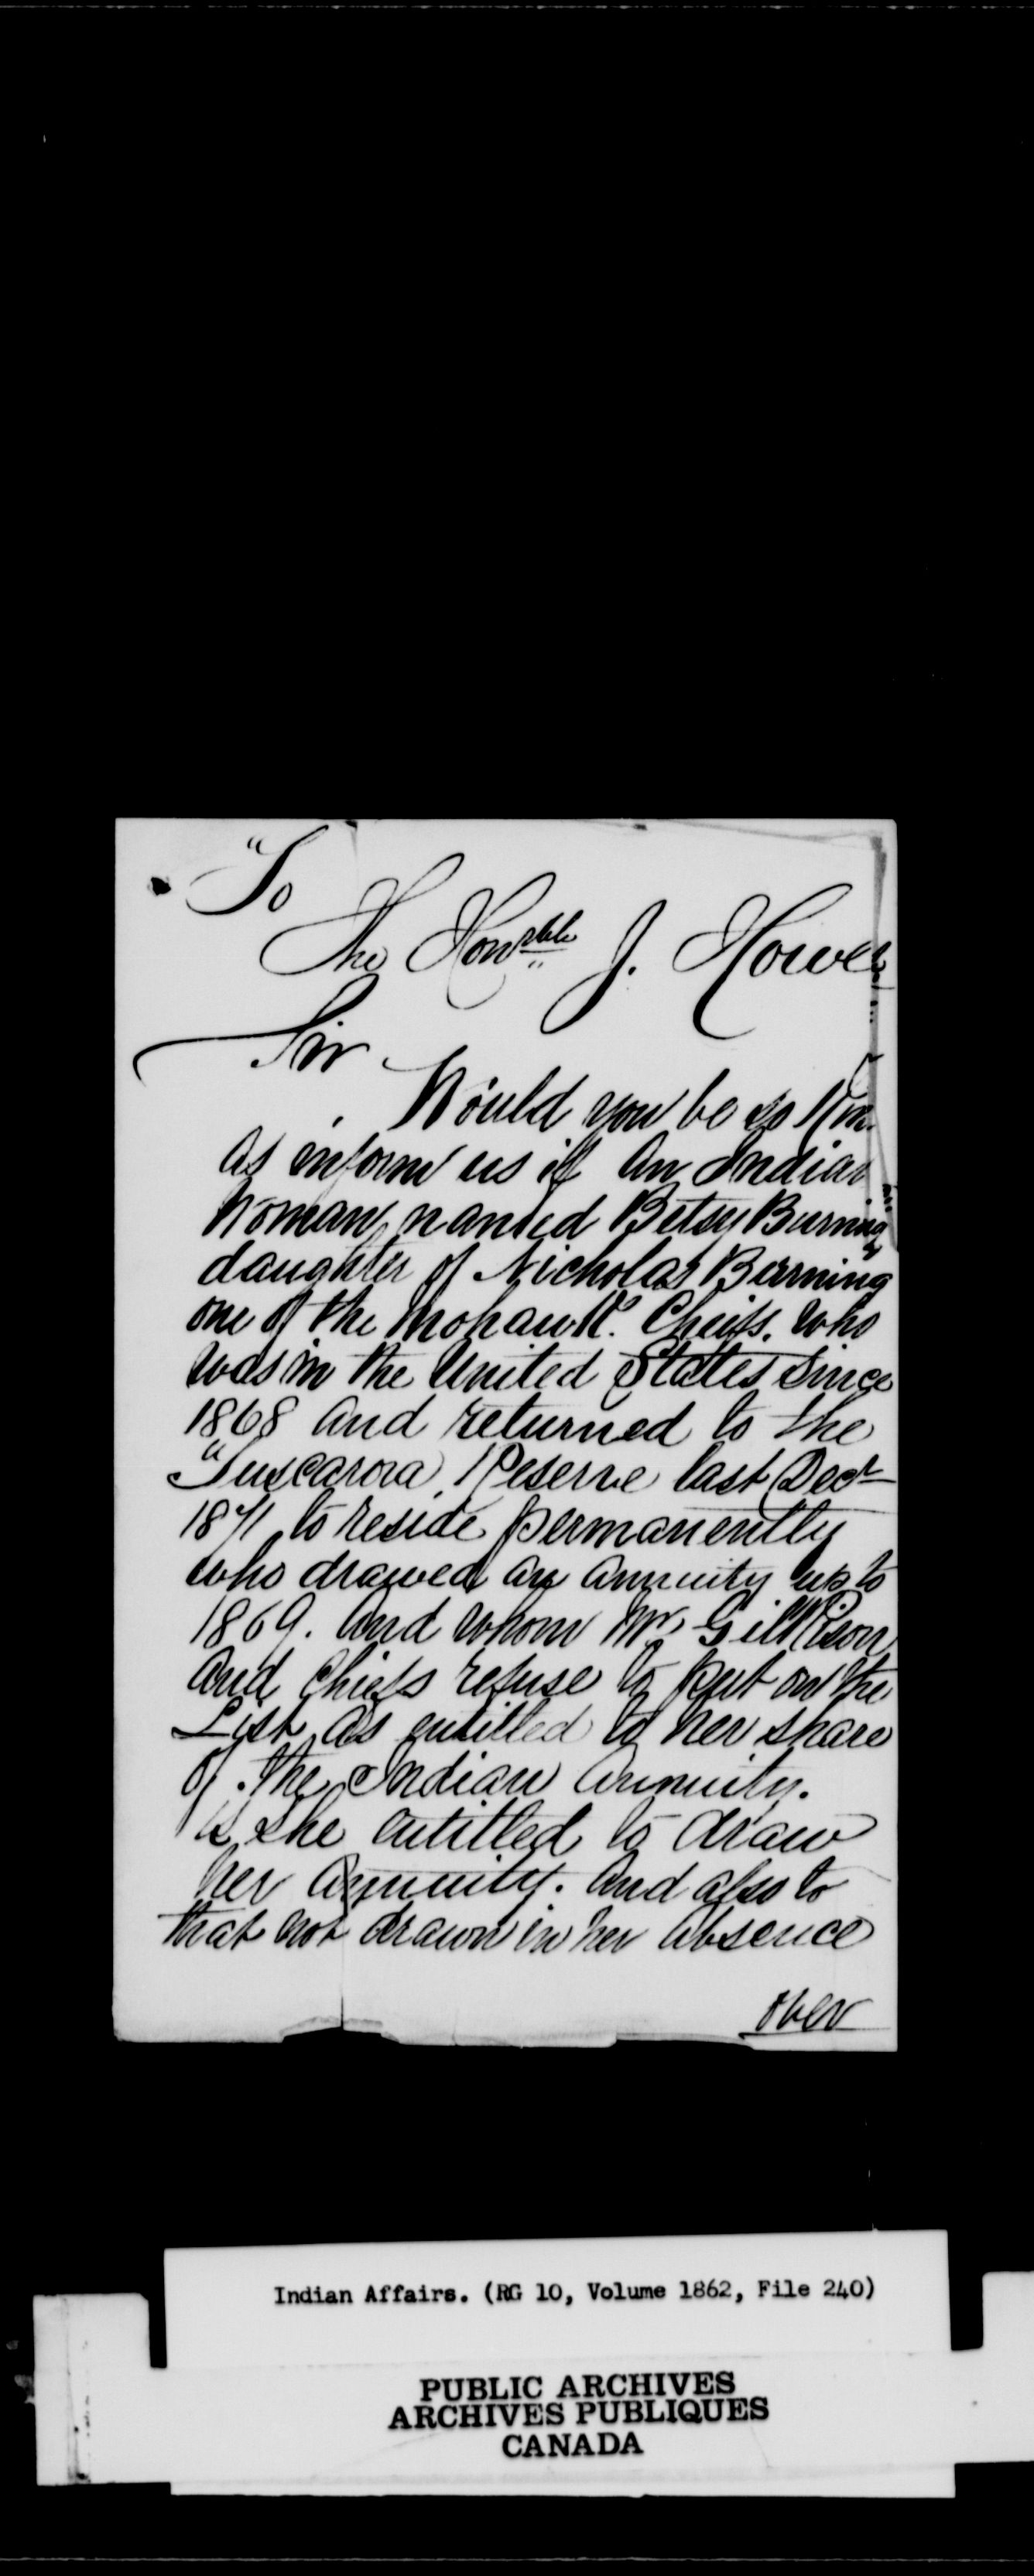 "To
The Honrble J. Howe
Sir
Would you be so Kin
as inform us if an Indian
Woman, named Betsy Burning
daughter of Nicholas Burning
one of the Mohawk. Cheifs. who
was in the United States since
1868 and returned to the
"Tuscarora Reserve last Decr
1871 to reside permanently
who drawed an annuity up to
1869. And whom Mr Gilkison
and Chiefs refuse to put on the
List as entitled to her share
of the Indian Annuity.
Is she entitled to draw
her Annuity. And also to
that not drawn in her absence
over
Indian Affairs. (RG 10, Volume 1862, File 240)
PUBLIC ARCHIVES
ARCHIVES PUBLIQUES
CANADA